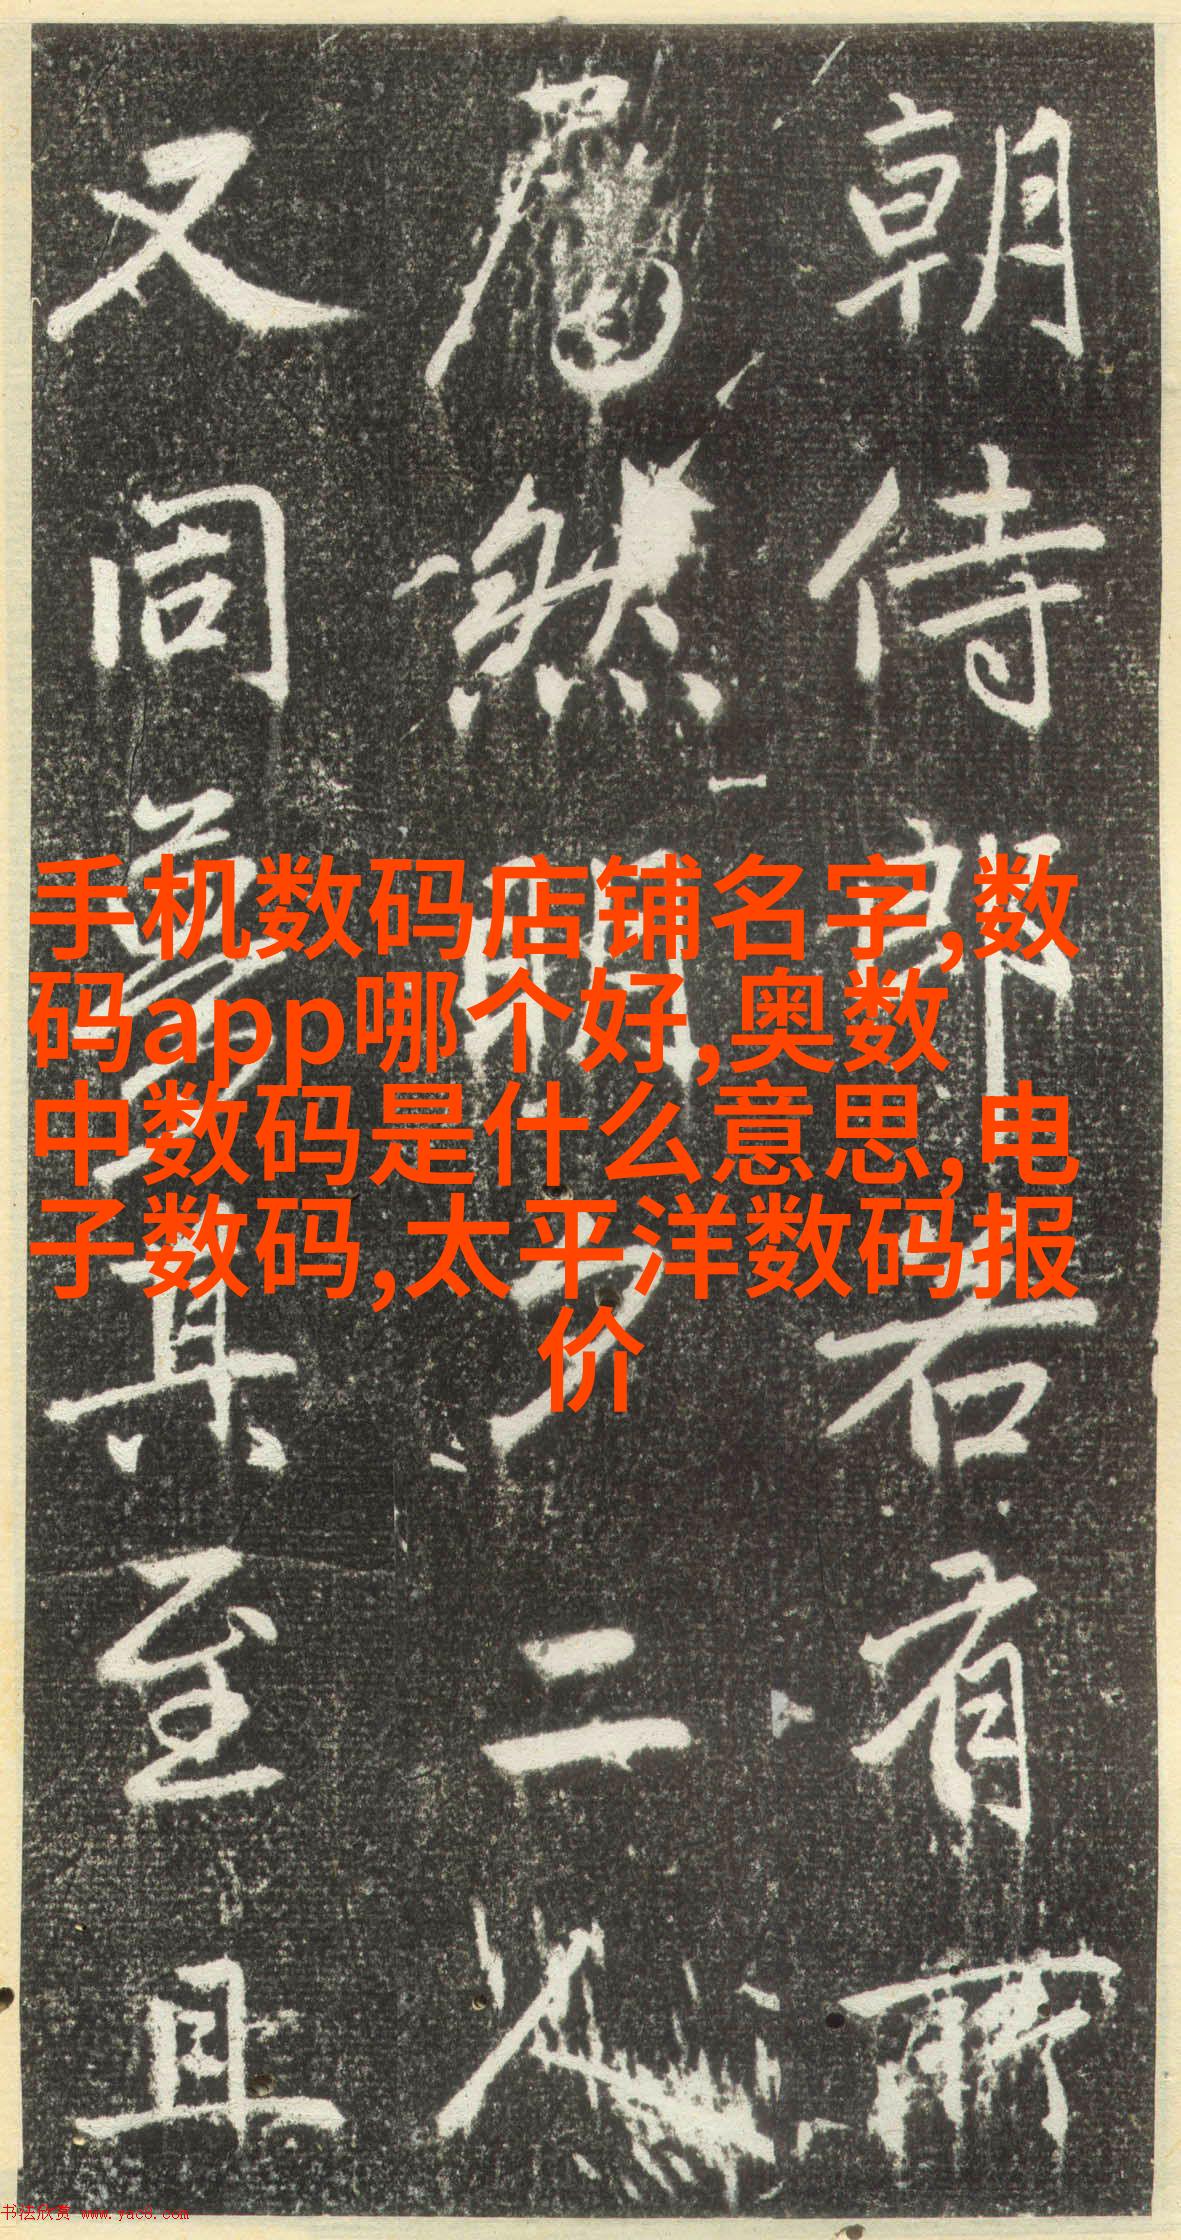 朝侍郎右有所
然明二人
又同至且
手机数码店铺名字,数
码app哪个好,奥数
中数码是什么意思,电
子数码,太平洋数码报
价
书法欣赏 www.yac8.com